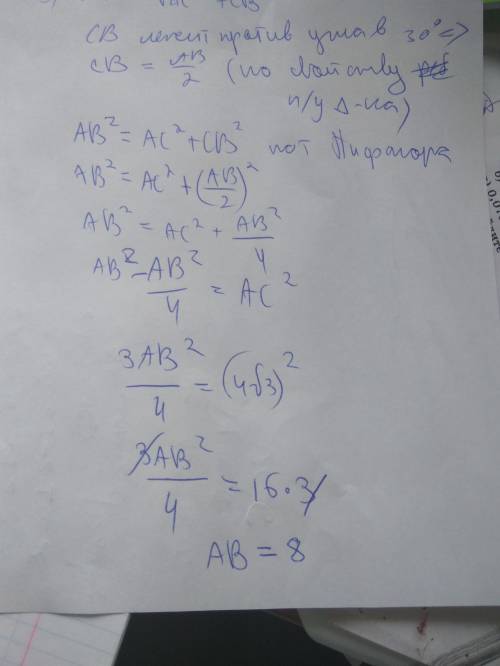 CB лежит против угла в 30° =>
CB = AB/2 (по свойству
п/у Δ-ка)
AB² = AC² + CB² по т Пифагора
AB² = AC² + (AB/2)²
AB² = AC² + AB²/4
AB² - AB²/4 = AC²
3AB²/4 = (4√3)²
3AB²/4 = 16·3
AB = 8